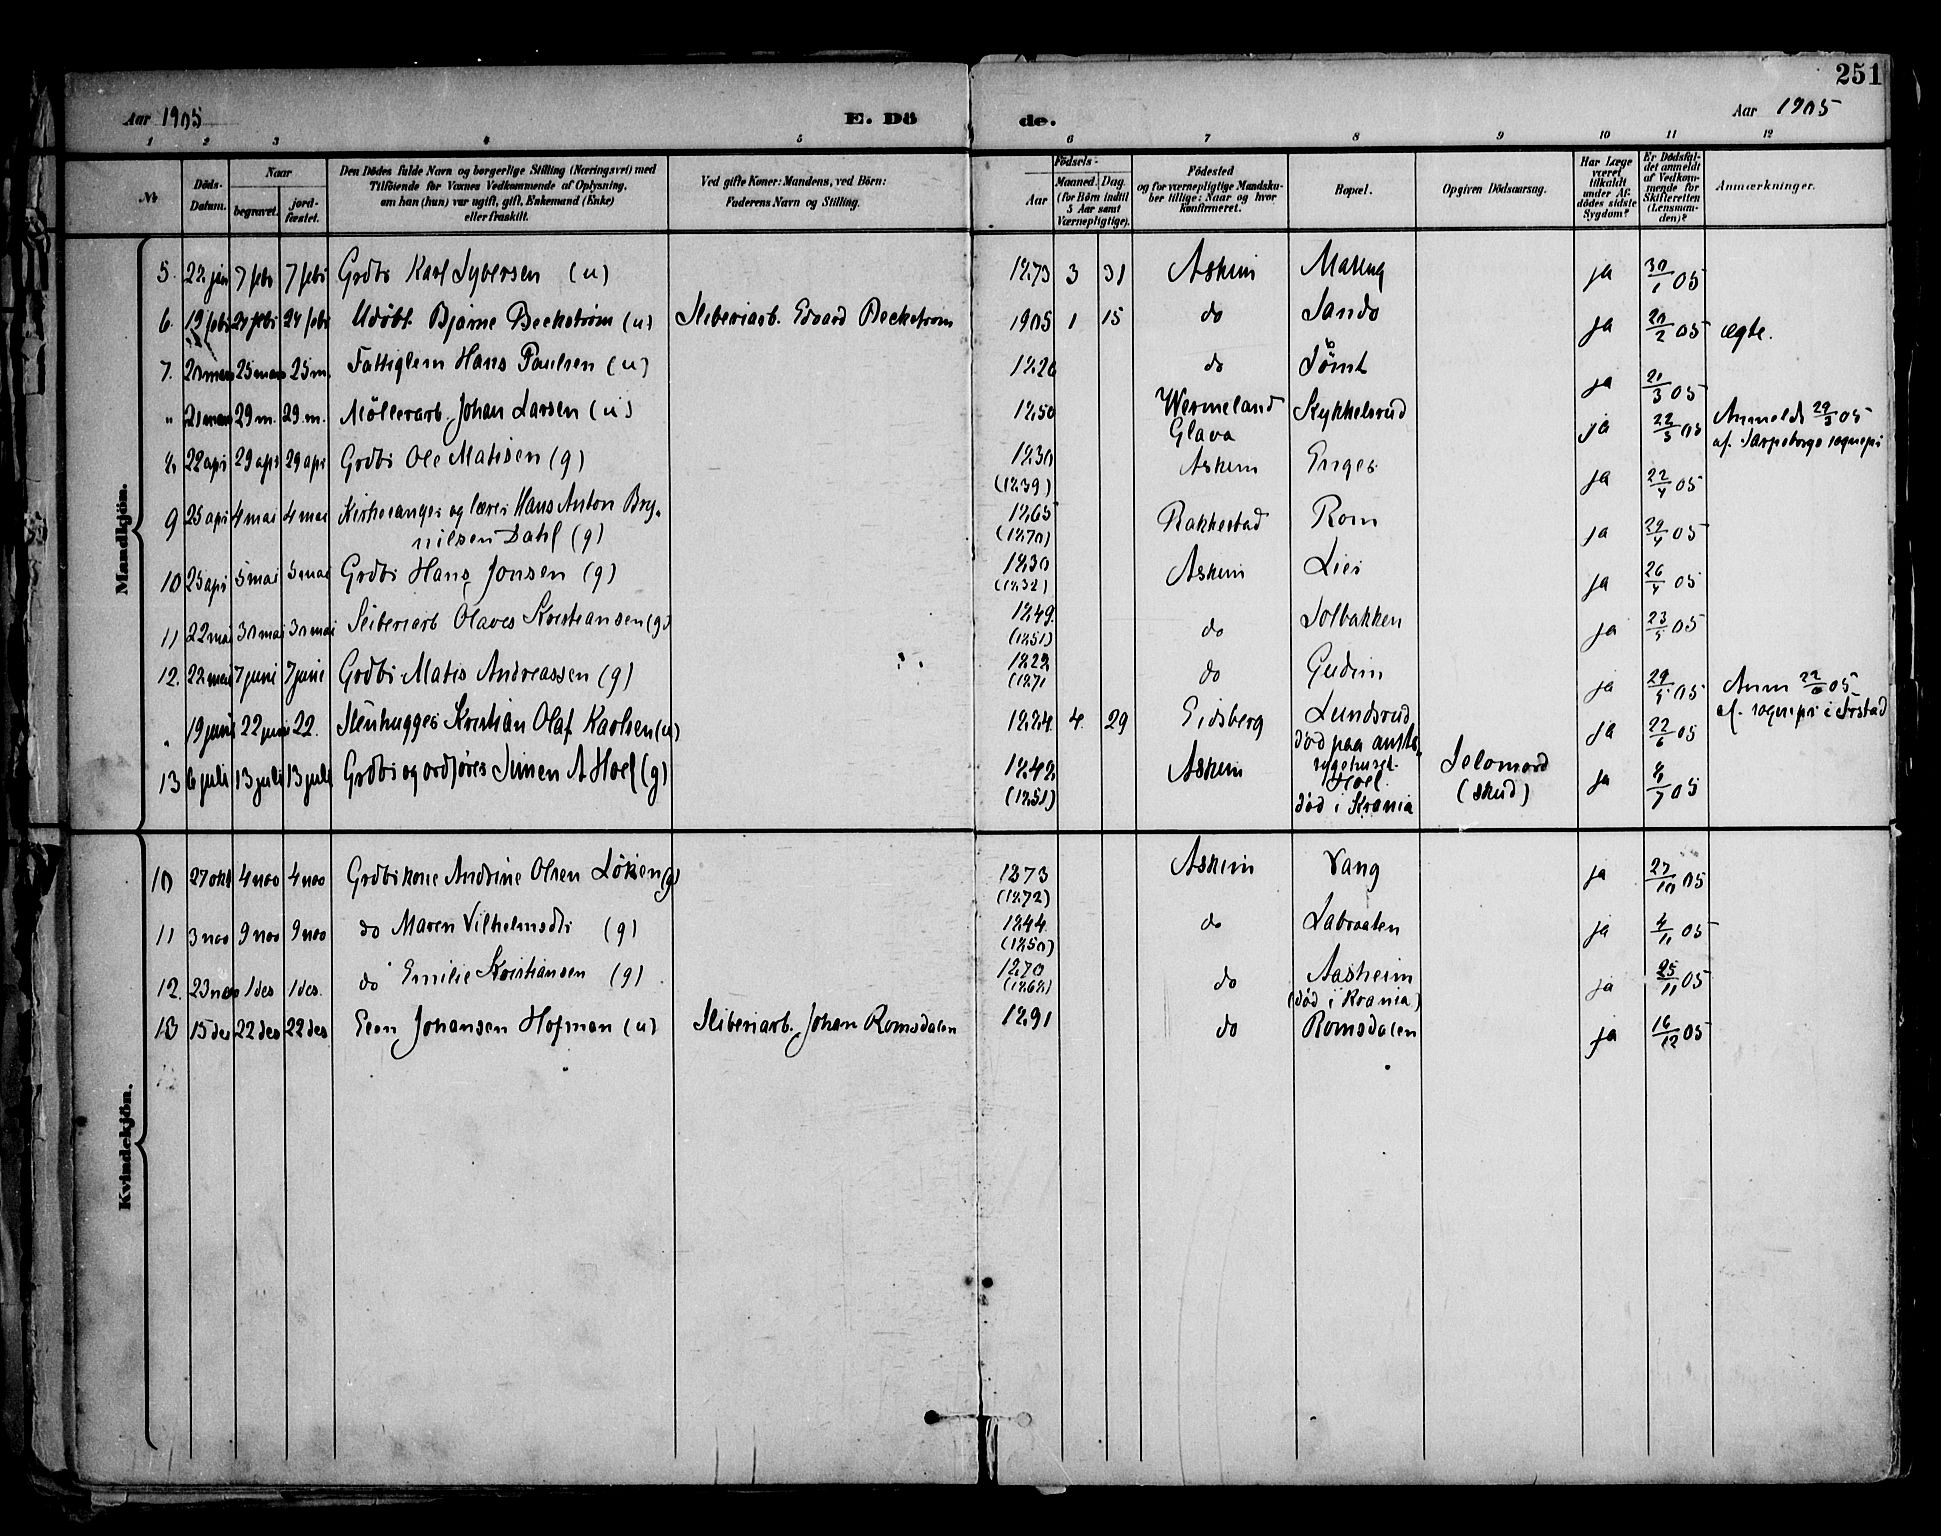 251
Aar 1905 E. Dö de. Aar 1905
1 2 3 4 5 6 7 8 9 10 11 12
No
Döds-Datum.
Naar
begravet.
jord-fæstet.
Den Dödes fulde Navn og borgerlige Stilling (Næringsvei) med
Tilföiende for Voxnes Vedkommende af Oplysning,
om han (hun) var ugift, gift, Enkemand (Enke)
eller fraskilt.
Ved gifte Koner: Mandens, ved Börn:
Faderens Navn og Stilling.
Födsels-
Aar
Maaned. Dag.
(for Börn indtil
5 Aar samt
Værnepligtige).
Födested
og for værnepligtige Mandsku-
ber tillige: Naar og hvor
konfirmeret.
Bopæl.
Opgiven Dödsaarsag.
Har Læge
været
tilkaldt
under Af-
dödes sidste
Sygdom?
Er Dödsfal-
det anmeldt
af Vedkom-
mende for
Skifteretten
(Lensman-
den)?
Anmærkninger.
Mandkjön.
5. 22 jan 7 feb 7 febr Grdbr Karl Syversen (u) 1873 3 31 Askim Ma ja 30/1 05
6. 19 febr 24 febr 24 febr Udöbt Bjarne Beckström (u) Sliberiarb. Edvard Beckström 1905 1 15 do Sando ja 20/2 05 ægte.
7. 20 mars 25 mars 25 m. Fattiglem Hans Paulsen (u) 1820 do Tömt ja 21/3 05
" 21 mars 29 m. 29 m. Möllerarb. Johan Larsen (u) 1850 Wermeland Glava Kykkelsrud ja 22/3 05 Anmeldt 29/3 05
af Sarpsborgs sognepr
8. 22 apr 29 apr 29 apr Grdbr Ole Matisen (g) 1830 (1839) Askim Enger ja 22/4 05
9 25 apr 4 mai 4 mai Kirkesanger og lærer Hans Anton Bry-
nilsen Dahl (g) 1865 (1870) Rakkestad Rom ja 29/4 05
10 25 apr 5 mai 5 mai Grdbr Hans Jonsen (g) 1830 (1832) Askim Lier ja 26/4 05
11 22 mai 30 mai 30 mai Sliberiarb Olaves Kristiansen (g) 1849 (1851) do Solbakken ja 23/5 05
12. 22 mai 7 juni 7 juni Grdbr Matis Andreassen (g) 1822 (1871 do Gudim ja 29/5 05
" 19 juni 22 juni 22. Stenhugger Kristian Olaf Karlsen (u) 1884 4. 29 Eidsberg Lundsrud
död paa amts-
sygehuset. ja 22/6 05 Anm 22/6 05
af. sognepr i Frstad
13 6 juli 13 juli 13 juli Grdbr og ordförer Simen A Hoel (g) 1848 (1851) Askim Hoel.
död i Krania Selvmord
(skud) ja 8/7 05
Kvindekjön.
10 27 okt 4 nov 4 nov Grdbrkone Andrine Olsen Löken (g) 1873 (1872) Askim Vang ja 27/10 05
11 3 nov 9 nov 9 nov do Maren Vilhelmsdtr (g) 1844 (1850) do Labraaten ja 4/11 05
12. 23 nov 1 des 1 des. do Emilie Kristiansen (g) 1870 (1868) do Aasheim
(död i Krania) ja 25/11 05
13 15 des 22 des 22 des Johansen Hofman (u) Sliberiarb. Johan Romsdalen 1891 do Romsdalen ja 16/12 05